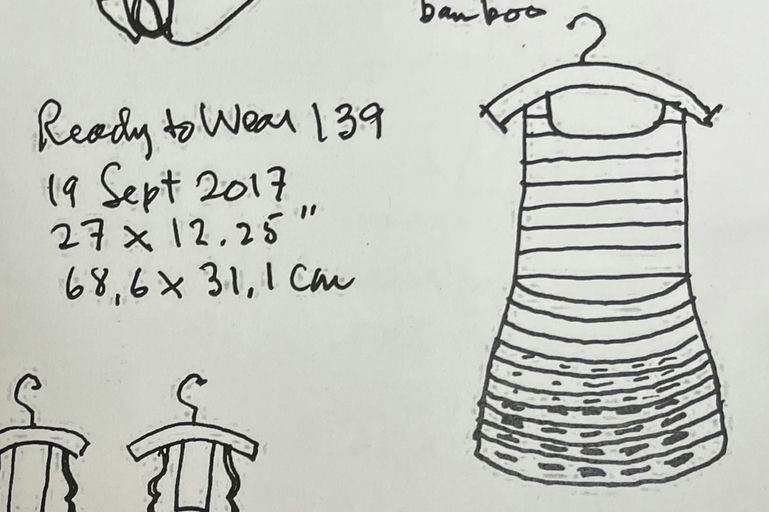 bamboo
Ready to Wear 139
19 Sept 2017
27 x 12.25"
68,6 x 31,1 cm